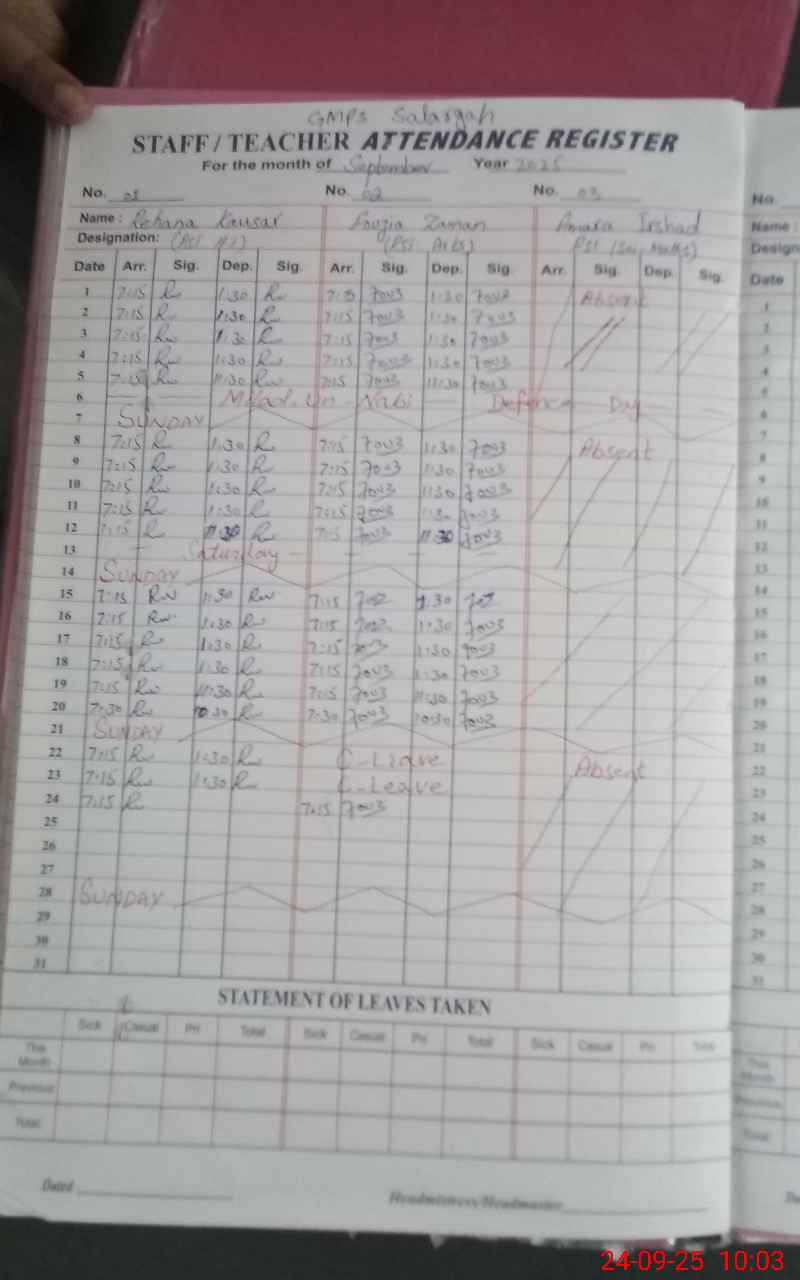 GMPS Salargah
STAFF / TEACHER ATTENDANCE REGISTER
For the month of September Year 2025
No. 01 No. 02 No. 03
Name : Rehana Kausar Fouzia Zaman Amara Irshad
Designation: (PST Arts)
Date Arr. Sig. Dep. Sig. Arr. Sig. Dep. Sig. Arr. Sig. Dep. Sig.
1 7:15 1:30 7:15 1:30 Absent
2 7:15 1:30 7:15 1:30
3 7:15 1:30 7:15 1:30
4 7:15 1:30 7:15 1:30
5 7:15 11:30 7:15 11:30
6 Milad-Un-Nabi Defence Day
7 SUNDAY
8 7:15 1:30 7:15 1:30 Absent
9 7:15 1:30 7:15 1:30
10 7:15 1:30 7:15 1:30
11 7:15 1:30 7:15 1:30
12 7:15 11:30 7:15 11:30
13 Saturday
14 SUNDAY
15 7:15 1:30 7:15 1:30
16 7:15 1:30 7:15 1:30
17 7:15 1:30 7:15 1:30
18 7:15 1:30 7:15 1:30
19 7:15 11:30 7:15 11:30
20 7:30 10:30 7:30 10:30
21 SUNDAY
22 7:15 1:30 C-Leave Absent
23 7:15 1:30 C-Leave
24 7:15 7:15
25
26
27
28 SUNDAY
29
30
31
STATEMENT OF LEAVES TAKEN
Sick Casual Pri Total Sick Casual Pri Total Sick Casual Pri Total
This Month
Previous
Total
Dated Headmistress/Headmaster
No.
Name :
Date
24-09-25 10:03